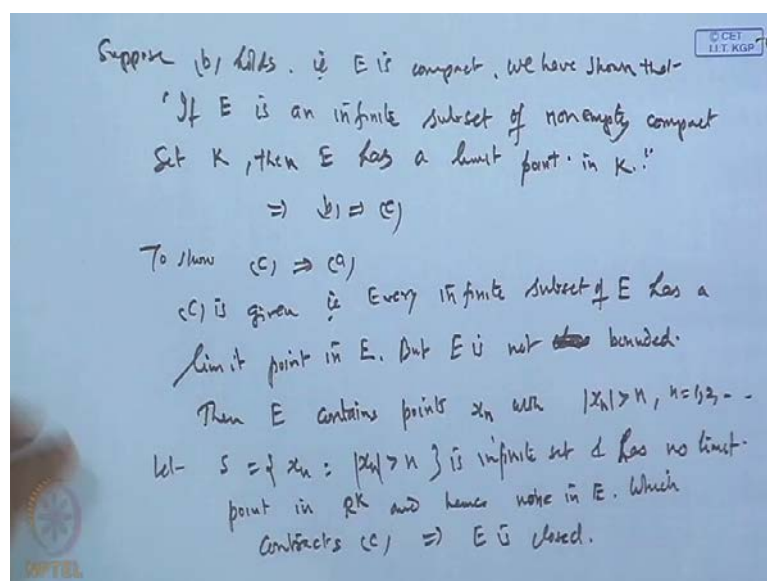 © CET
I.I.T. KGP
Suppose (b) holds. ie E is compact. We have shown that
"If E is an infinite subset of nonempty compact
Set K, then E has a limit point in K."
⇒ (b) ⇒ (c)
To show (c) ⇒ (a)
(c) is given ie Every infinite subset of E has a
limit point in E. But E is not bounded.
Then E contains points xₙ with |xₙ| > n, n=1,2,--
Let S = { xₙ : |xₙ| > n } is infinite set & has no limit
point in Rᴷ and hence none in E. Which
contracts (c) ⇒ E is closed.
NPTEL